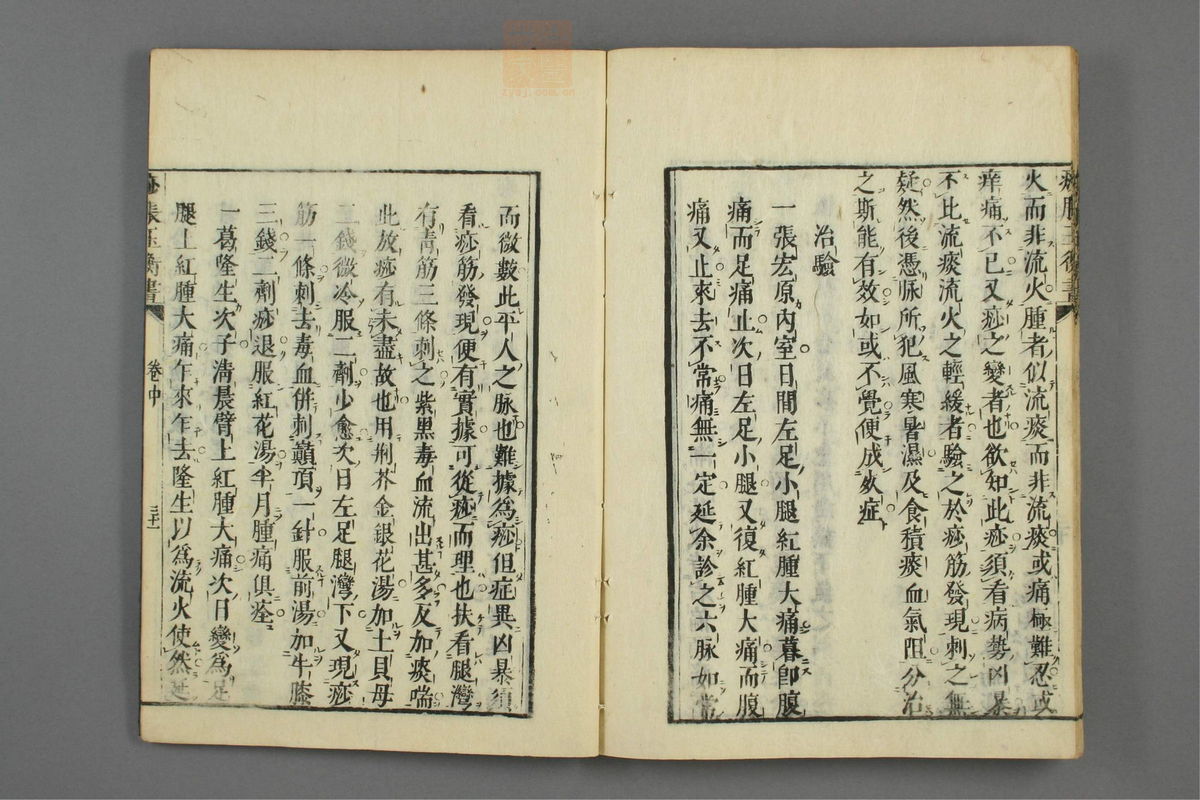 火而非流火腫者似流痰而非流痰或痛極難忍或
痒痛不已又痧之變者也欲知此痧須看病勢凶暴
不比流痰流火之輕緩者驗之於痧筋發現刺之無
疑然後憑脉所犯風寒暑濕及食積痰血氣阻分治
之斯能有效如或不覺便成死症
治驗
一張宏原內室日間左足小腿紅腫大痛暮卽腹
痛而足痛止次日左足小腿又復紅腫大痛而腹
痛又止來去不常痛無一定延余診之六脉如常
而微數此平人之脉也難據爲痧但症異凶暴須
看痧筋發現便有實據可從痧而理也扶看腿灣
有青筋三條刺之紫黑毒血流出甚多反加痰喘
此放痧有未盡故也用荆芥金銀花湯加土貝母
二錢微冷服二劑少愈次日左足腿灣下又現痧
筋一條刺去毒血併刺巔頂一針服前湯加牛膝
三錢二劑痧退服紅花湯半月腫痛俱痊
一葛隆生次子淸晨臂上紅腫大痛次日變爲足
腿上紅腫大痛乍來乍去隆生以爲流火使然延
痧脹玉衡書
卷中
三十一